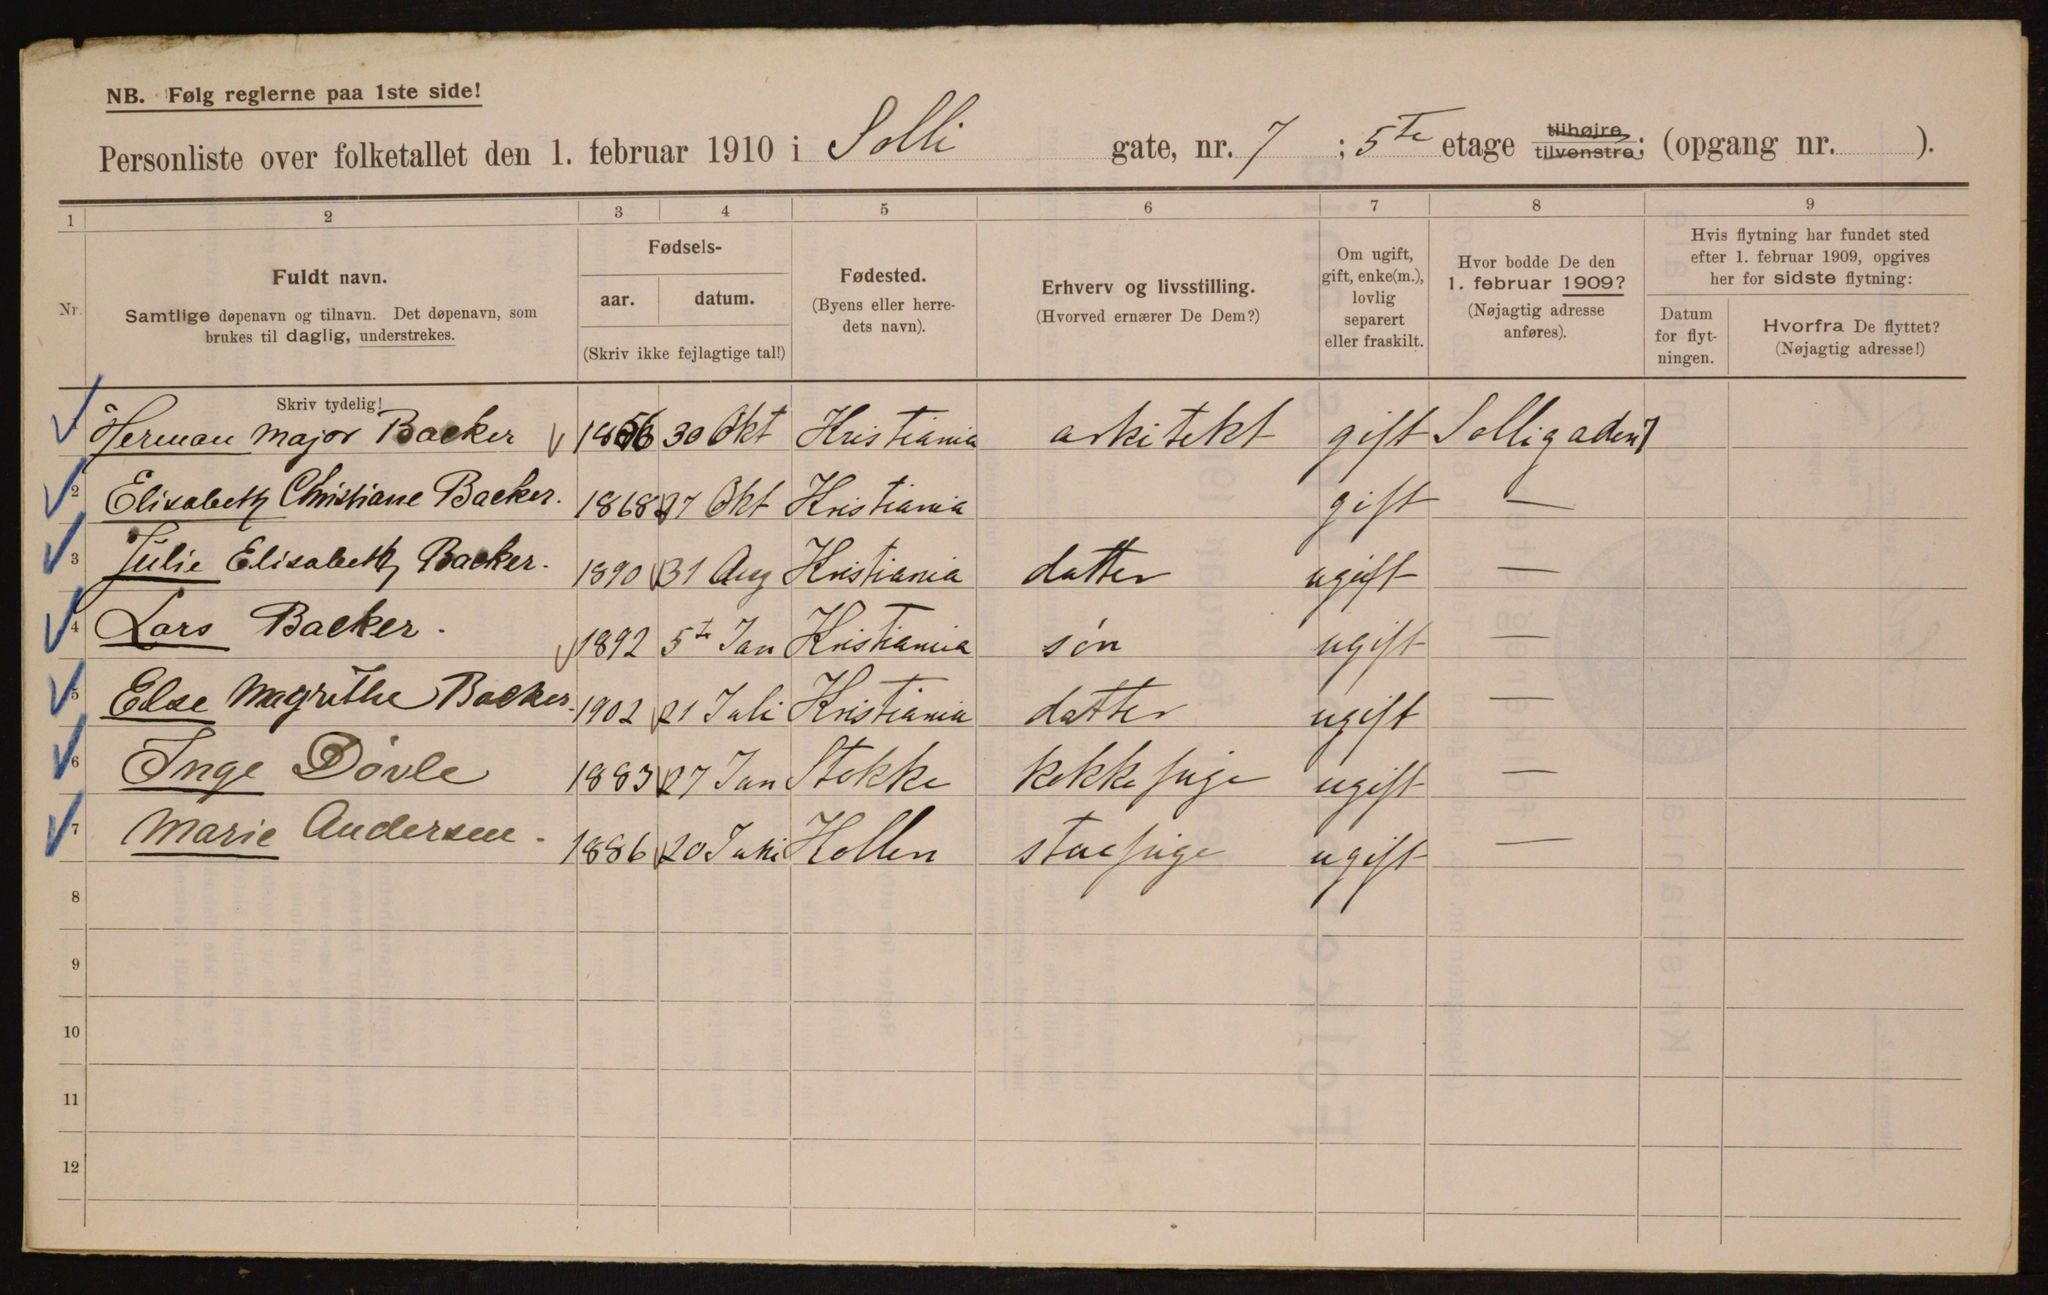 NB. Følg reglerne paa 1ste side!
Personliste over folketallet den 1. februar 1910 i Solli gate, nr. 7 ; 5te etage tilhøjre tilvenstre; (opgang nr. ).
1 2 3 4 5 6 7 8 9
Nr.
Fuldt navn.
Samtlige døpenavn og tilnavn. Det døpenavn, som
brukes til daglig, understrekes.
Skriv tydelig!
Fødsels-
aar. datum.
(Skriv ikke fejlagtige tal!)
Fødested.
(Byens eller herre-
dets navn).
Erhverv og livsstilling.
(Hvorved ernærer De Dem?)
Om ugift,
gift, enke(m.),
lovlig
separert
eller fraskilt.
Hvor bodde De den
1. februar 1909?
(Nøjagtig adresse
anføres).
Hvis flytning har fundet sted
efter 1. februar 1909, opgives
her for sidste flytning:
Datum
for flyt-
ningen.
Hvorfra De flyttet?
(Nøjagtig adresse!)
Herman Major Backer 1856 30 Okt Kristiania arkitekt gift Solligaden 7
2 Elisabeth Christiane Backer. 1868 27 Okt Kristiania gift —
3 Julie Elisabeth Backer. 1890 31 Aug Kristiania datter ugift —
4 Lars Backer. 1892 5te Jan Kristiania søn ugift —
5 Else Magrethe Backer. 1902 21 Juli Kristiania datter ugift —
6 Inge Døvle 1883 27 Jan Stokke kokkepige ugift —
7 Marie Andersen. 1886 20 Juni Hollen stuepige ugift —
8
9
10
11
12